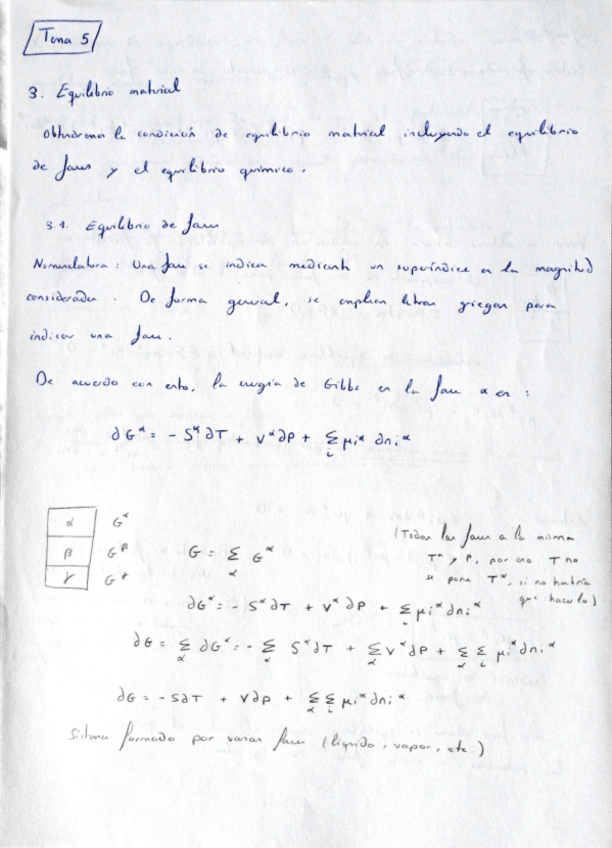 Tema 5
3. Equilibrio material
Obtendremos la condición de equilibrio material incluyendo el equilibrio
de fases y el equilibrio químico.
3.1. Equilibrio de fases
Nomenclatura: Una fase se indica mediante un superíndice en la magnitud
considerada. De forma general, se emplean letras griegas para
indicar una fase.
De acuerdo con esto, la energía de Gibbs en la fase α es:
∂G^α = - S^α ∂T + V^α ∂P + Σ_i μi^α ∂ni^α
α G^α
β G^β
γ G^γ
G = Σ_α G^α
(Todas las fases a la misma
T^α y P, por eso T no
se pone T^α, si no habría
que hacerlo)
∂G^α = - S^α ∂T + V^α ∂P + Σ_i μi^α ∂ni^α
∂G = Σ_α ∂G^α = - Σ_α S^α ∂T + Σ_α V^α ∂P + Σ_α Σ_i μi^α ∂ni^α
∂G = - S∂T + V∂P + Σ_α Σ_i μi^α ∂ni^α
Sistema formado por varias fases (líquido, vapor, etc.)